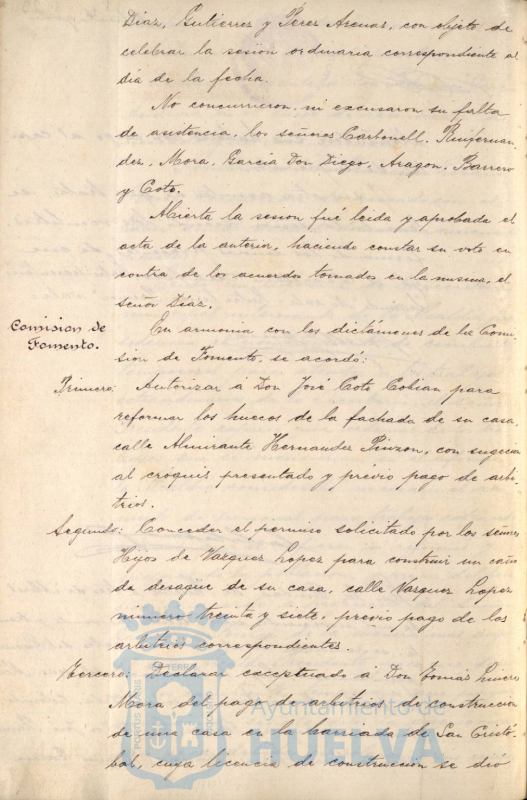 Diaz, Gutierrez y Perez Arenas, con objeto de
celebrar la sesion ordinaria correspondiente al
dia de la fecha.
No concurrieron, ni excusaron su falta
de asistencia, los señores Carbonell, Ruifernan
dez, Mora, Garcia Don Diego, Aragon, Barrero
y Coto.
Abierta la sesion fué leida y aprobada el
acta de la anterior, haciendo constar su voto en
contra de los acuerdos tomados en la misma, el
señor Díaz.
Comision de
Fomento.
En armonia con los dictámenes de la Comi
sion de Fomento, se acordó:
Primero: Autorizar á Don José Coto Cobian para
reformar los huecos de la fachada de su casa,
calle Almirante Hernandez Pinzon, con sugecion
al cróquis presentado y prévio pago de arbi
trios.
Segundo: Conceder el permiso solicitado por los señores
Hijos de Vazquez Lopez para construir un caño
de desagüe de su casa, calle Vazquez Lopez
número treinta y siete, prévio pago de los
arbitrios correspondientes.
Tercero: Declarar exceptuado á Don Tomás
Mora del pago de arbitrios de construccion
de una casa en la barriada de San Cristó
bal, cuya licencia de construccion se dió
PORTUS
TERRÆ
Ayuntamiento de
HUELVA